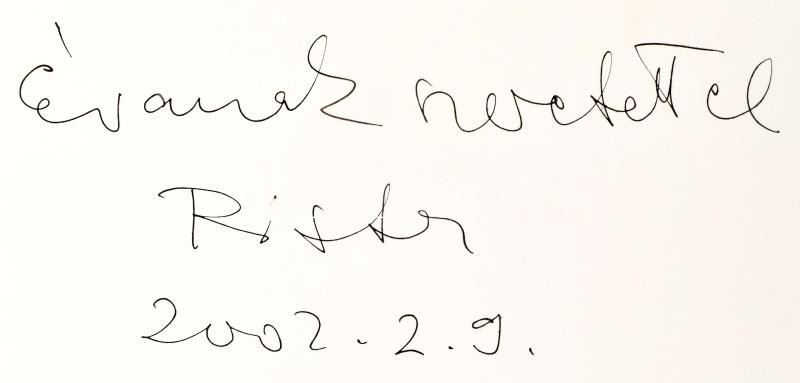 Évának szeretettel
Rister
2002.2.9.